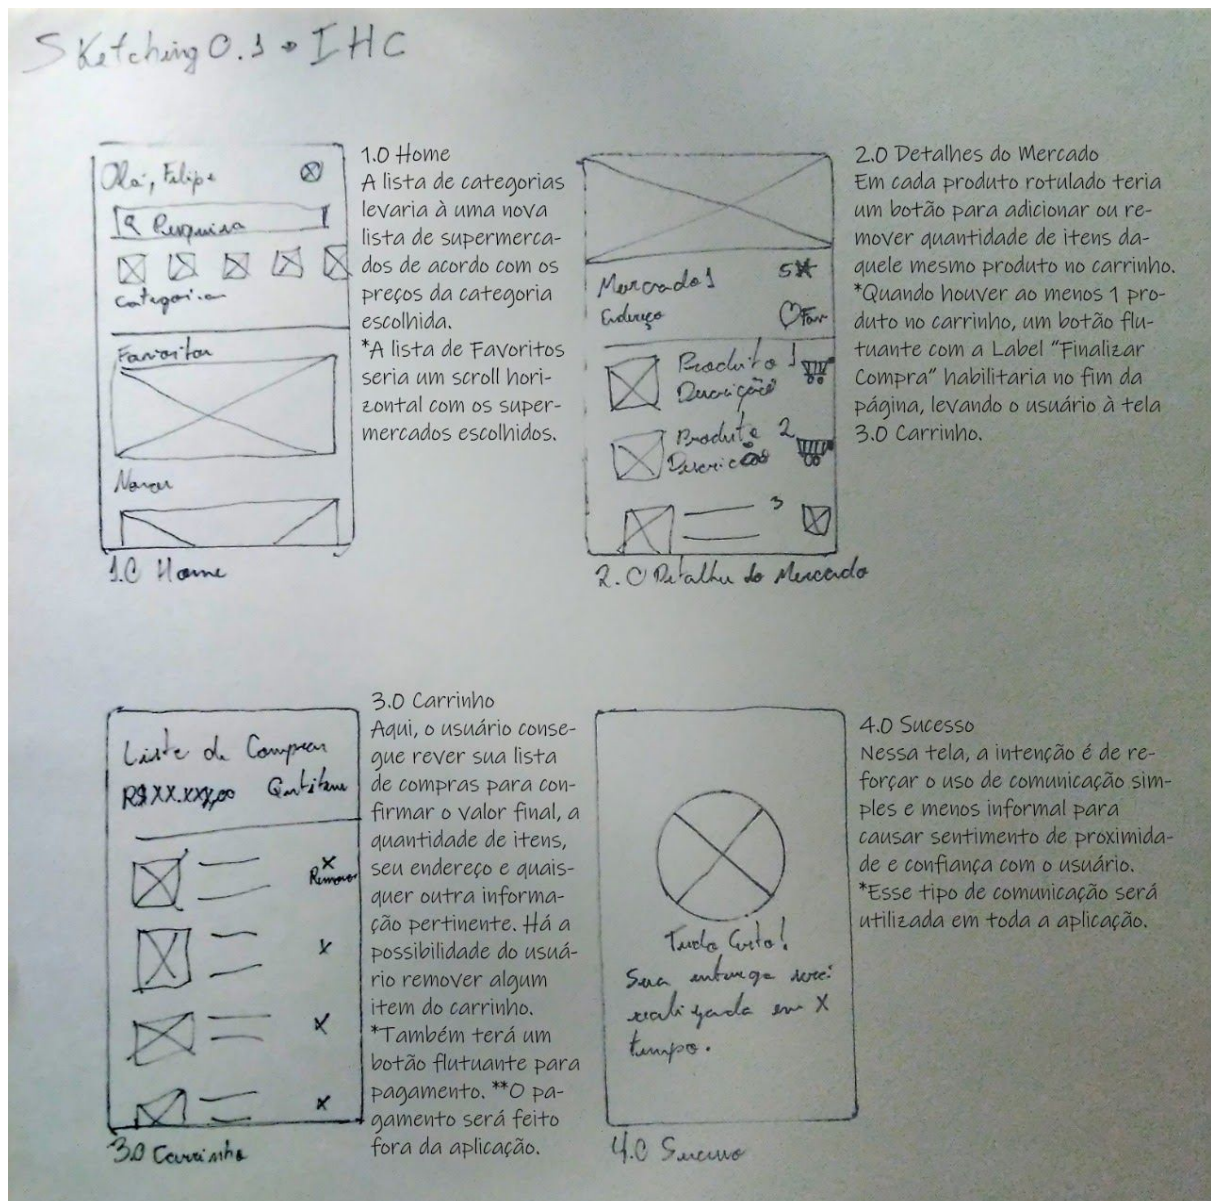 Sketching 0.1 • IHC
Olá, Felipe
Pesquisa
Categorias
Favoritos
1.0 Home
1.0 Home
A lista de categorias
levaria à uma nova
lista de supermerca-
dos de acordo com os
preços da categoria
escolhida.
*A lista de Favoritos
seria um scroll hori-
zontal com os super-
mercados escolhidos.
Mercado 1
5
Endereço
Fav
Produto 1
Descrição
Produto 2
Descrição
3
2.0 Detalhes do Mercado
2.0 Detalhes do Mercado
Em cada produto rotulado teria
um botão para adicionar ou re-
mover quantidade de itens da-
quele mesmo produto no carrinho.
*Quando houver ao menos 1 pro-
duto no carrinho, um botão flu-
tuante com a Label "Finalizar
Compra" habilitaria no fim da
página, levando o usuário à tela
3.0 Carrinho.
Lista de Compras
R$ XX.XXX,00
X
Remover
X
X
X
3.0 Carrinho
3.0 Carrinho
Aqui, o usuário conse-
gue rever sua lista
de compras para con-
firmar o valor final, a
quantidade de itens,
seu endereço e quais-
quer outra informa-
ção pertinente. Há a
possibilidade do usuá-
rio remover algum
item do carrinho.
*Também terá um
botão flutuante para
pagamento. **O pa-
gamento será feito
fora da aplicação.
Tudo Certo!
Sua entrega será
realizada em X
tempo.
4.0 Sucesso
4.0 Sucesso
Nessa tela, a intenção é de re-
forçar o uso de comunicação sim-
ples e menos informal para
causar sentimento de proximida-
de e confiança com o usuário.
*Esse tipo de comunicação será
utilizada em toda a aplicação.